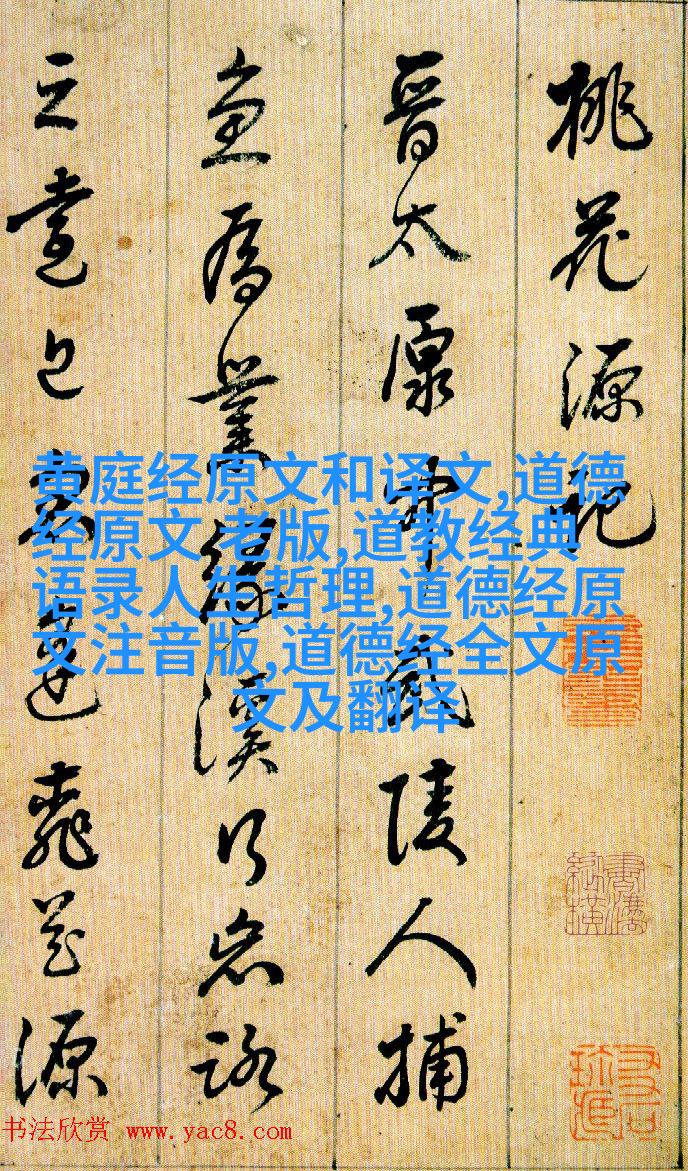 桃花源記
晉太原中武陵人捕
魚為業緣溪行忘路
之遠近忽逢桃花源
黄庭经原文和译文,道德
经原文 老版,道教经典
语录人生哲理,道德经原
文注音版,道德经全文原
文及翻译
书法欣赏 www.yac8.com